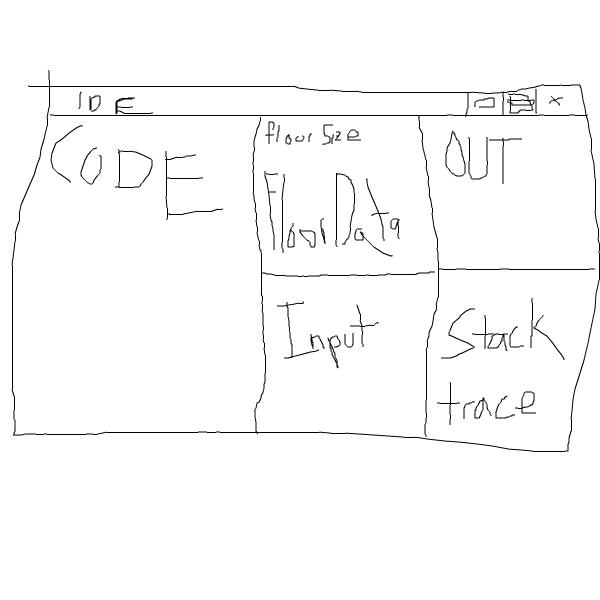 IDE
x
CODE
floor Size
FloorData
Input
OUT
Stack
trace